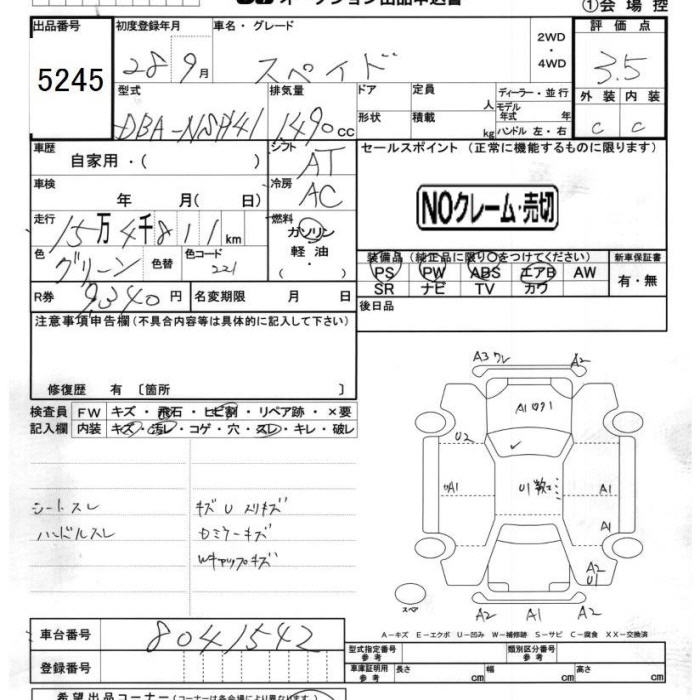 オークション出品申込書
①会場控
出品番号 初度登録年月 車名・グレード 2WD・4WD 評価点
5245 28 9月 スペイド 3.5
型式 排気量 ドア 定員 人 ディーラー・並行 外装 内装
DBA-NSP141 1,490cc 形状 積載 kg モデル年式 年 ハンドル 左・右 C C
車歴 シフト セールスポイント (正常に機能するものに限ります)
自家用・( ) AT
車検 冷房
年 月( 日) AC
NOクレーム・売切
走行 燃料
15万4千811km ガソリン
軽油
色 グリーン 色替 色コード 221
装備品 (純正品に限り〇をつけてください) 新車保証書
PS PW ABS エアB AW 有・無
SR ナビ TV カワ
R券 9,340円 名変期限 月 日 後日品
注意事項申告欄(不具合内容等は具体的に記入して下さい)
修復歴 有〔箇所 〕
検査員 FW キズ・飛石・ヒビ割・リペア跡・×要
記入欄 内装 キズ・汚レ・コゲ・穴・スレ・キレ・破レ
シートスレ キズ U スリキズ
ハンドルスレ Dミラーキズ
Wキャップキズ
A3 ワレ A2
A1
U2
A1 U1 A1
A1
A2
U1
スペア
A2 A1 A2
A-キズ E-エクボ U-凹み W-補修跡 S-サビ C-腐食 XX-交換済
車台番号 8041542
型式指定番号 参考 類別区分番号 参考
登録番号
車庫証明用 参考 長さ cm 幅 cm 高さ cm
希望出品コーナー (コーナーは各会場により異なります)